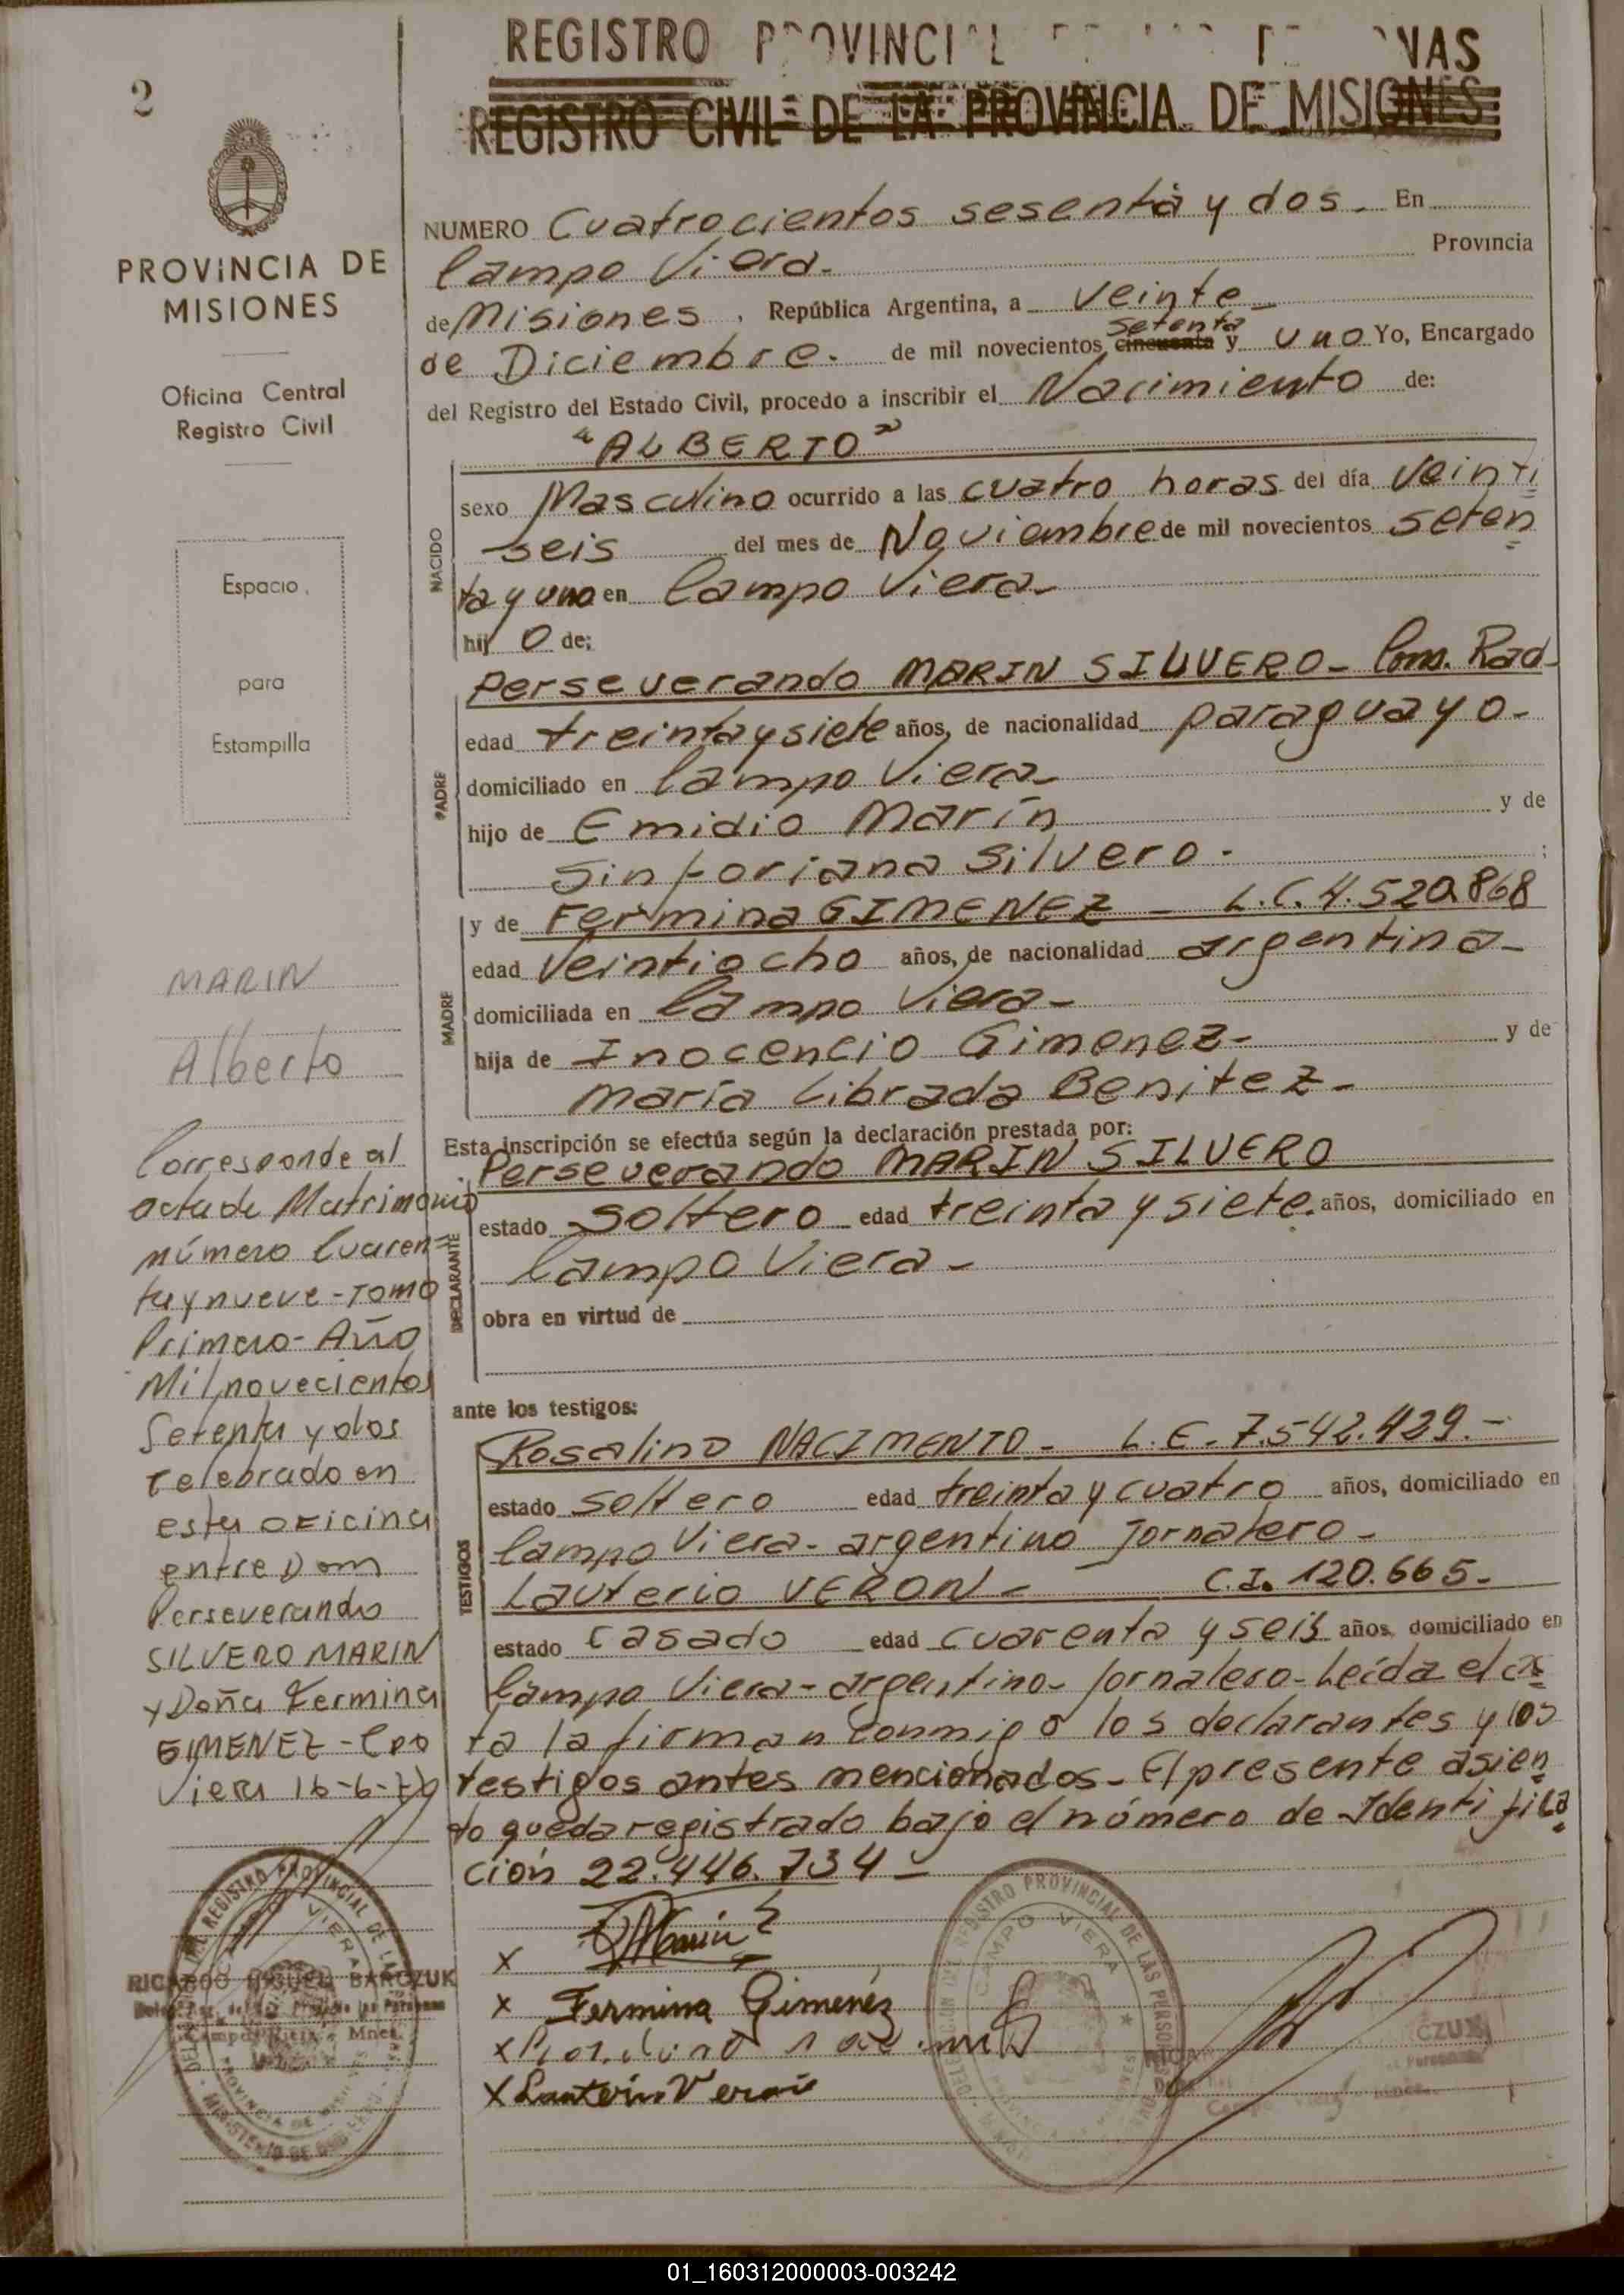 2
REGISTRO PROVINCIAL
REGISTRO CIVIL DE LA PROVINCIA DE MISIONES
PROVINCIA DE
MISIONES
Oficina Central
Registro Civil
Espacio
para
Estampilla
MARIN
Alberto
Corresponde al
acta de Matrimonio
número Cuaren=
ta y nueve - Tomo
Primero - Año
Mil novecientos
Setenta y dos
celebrado en
esta oficina
entre Dom
Perseverando
SILVERO MARIN
y Doña Fermina
GIMENEZ - Cpo
Viera 16-6-79
NUMERO Cuatrocientos sesenta y dos. En
Campo Viera. Provincia
de Misiones, República Argentina, a veinte
de Diciembre. de mil novecientos setenta cincuenta y uno Yo, Encargado
del Registro del Estado Civil, procedo a inscribir el Nacimiento de:
"ALBERTO"
NACIDO
sexo Masculino ocurrido a las cuatro horas del día veinti
seis del mes de Noviembre de mil novecientos seten
ta y uno en Campo Viera
hij o de:
PADRE
Perseverando MARIN SILVERO - Cons. Rad
edad treinta y siete años, de nacionalidad paraguayo -
domiciliado en Campo Viera
hijo de Emidio Marín y de
Sinforiana Silvero. ;
MADRE
y de Fermina GIMENEZ - L.C. 4.520.868
edad veintiocho años, de nacionalidad argentina
domiciliada en Campo Viera -
hija de Inocencio Gimenez - y de
María Librada Benitez -
Esta inscripción se efectúa según la declaración prestada por:
DECLARANTE
Perseverando MARIN SILVERO
estado soltero edad treinta y siete. años, domiciliado en
Campo Viera -
obra en virtud de
ante los testigos:
TESTIGOS
Rosalino NACIMENTO - L.E. 7.542.429. -
estado soltero edad treinta y cuatro años, domiciliado en
Campo Viera - argentino Jornalero -
Lauterio VERON - C.I. 120.665 -
estado casado edad cuarenta y seis años, domiciliado en
Campo Viera - argentino - Jornalero - Leída el ac
ta la firman conmigo los declarantes y los
testigos antes mencionados - El presente asien
to queda registrado bajo el número de Identifica
ción 22.446.734 -
x Marin
x Fermina Gimenéz
x
x Lauterio Veron
REGISTRO PROVINCIAL DE LAS PERSONAS
CAMPO VIERA
RICARDO MIGUEL BARCZUK
Campo Viera - Mnes.
01_160312000003-003242